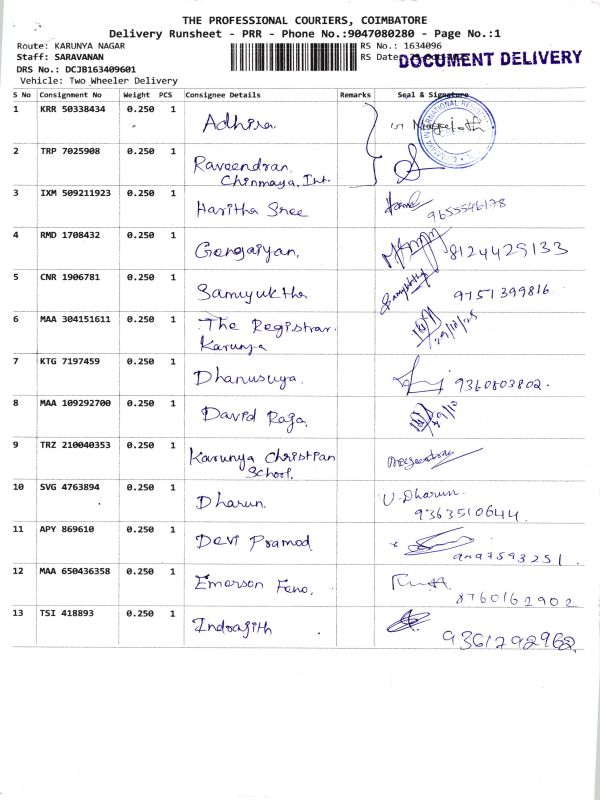 THE PROFESSIONAL COURIERS, COIMBATORE
Delivery Runsheet - PRR - Phone No.:9047080280 - Page No.:1
Route: KARUNYA NAGAR
RS No.: 1634096
Staff: SARAVANAN
RS Date:
DOCUMENT DELIVERY
DRS No.: DCJB163409601
Vehicle: Two Wheeler Delivery
S No Consignment No Weight PCS Consignee Details Remarks Seal & Signature
1 KRR 50338434 0.250 1 Adhira
2 TRP 7025908 0.250 1 Raveendran.
Chinmaya. Int.
3 IXM 509211923 0.250 1 Haritha Sree 9655546178
4 RMD 1708432 0.250 1 Gengaiyan. 8124429133
5 CNR 1906781 0.250 1 Samyuktha 9751399816
6 MAA 304151611 0.250 1 The Registrar. 29/10/25
Karunya
7 KTG 7197459 0.250 1 Dhanusuya. 9360803802.
8 MAA 109292700 0.250 1 David Raja. 29/10
9 TRZ 210040353 0.250 1 Karunya Christian
School.
10 SVG 4763894 0.250 1 Dharun. U. Dharun.
9363510644
11 APY 869610 0.250 1 Devi Pramod
12 MAA 650436358 0.250 1 Emerson Feno.
8760162902
13 TSI 418893 0.250 1 Indrajith 9361292962